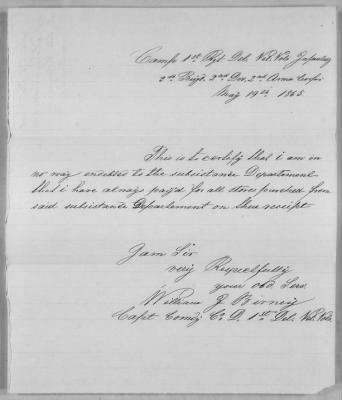 Camp 1st Regt. Del. Vet. Vols Infantry
2nd Brigd. 2nd Div. 2nd Army Corps
May 19th 1865.
This is to certify that i am in
no way endebted to the subsistance Department
that i have always pay'd for all stores purched from
said subsistance Department on thea receipt
I am Sir
very Respectfully
your obd. Serv.
William J. Birney
Capt Comdg Co. D. 1st Del. Vet. Vols